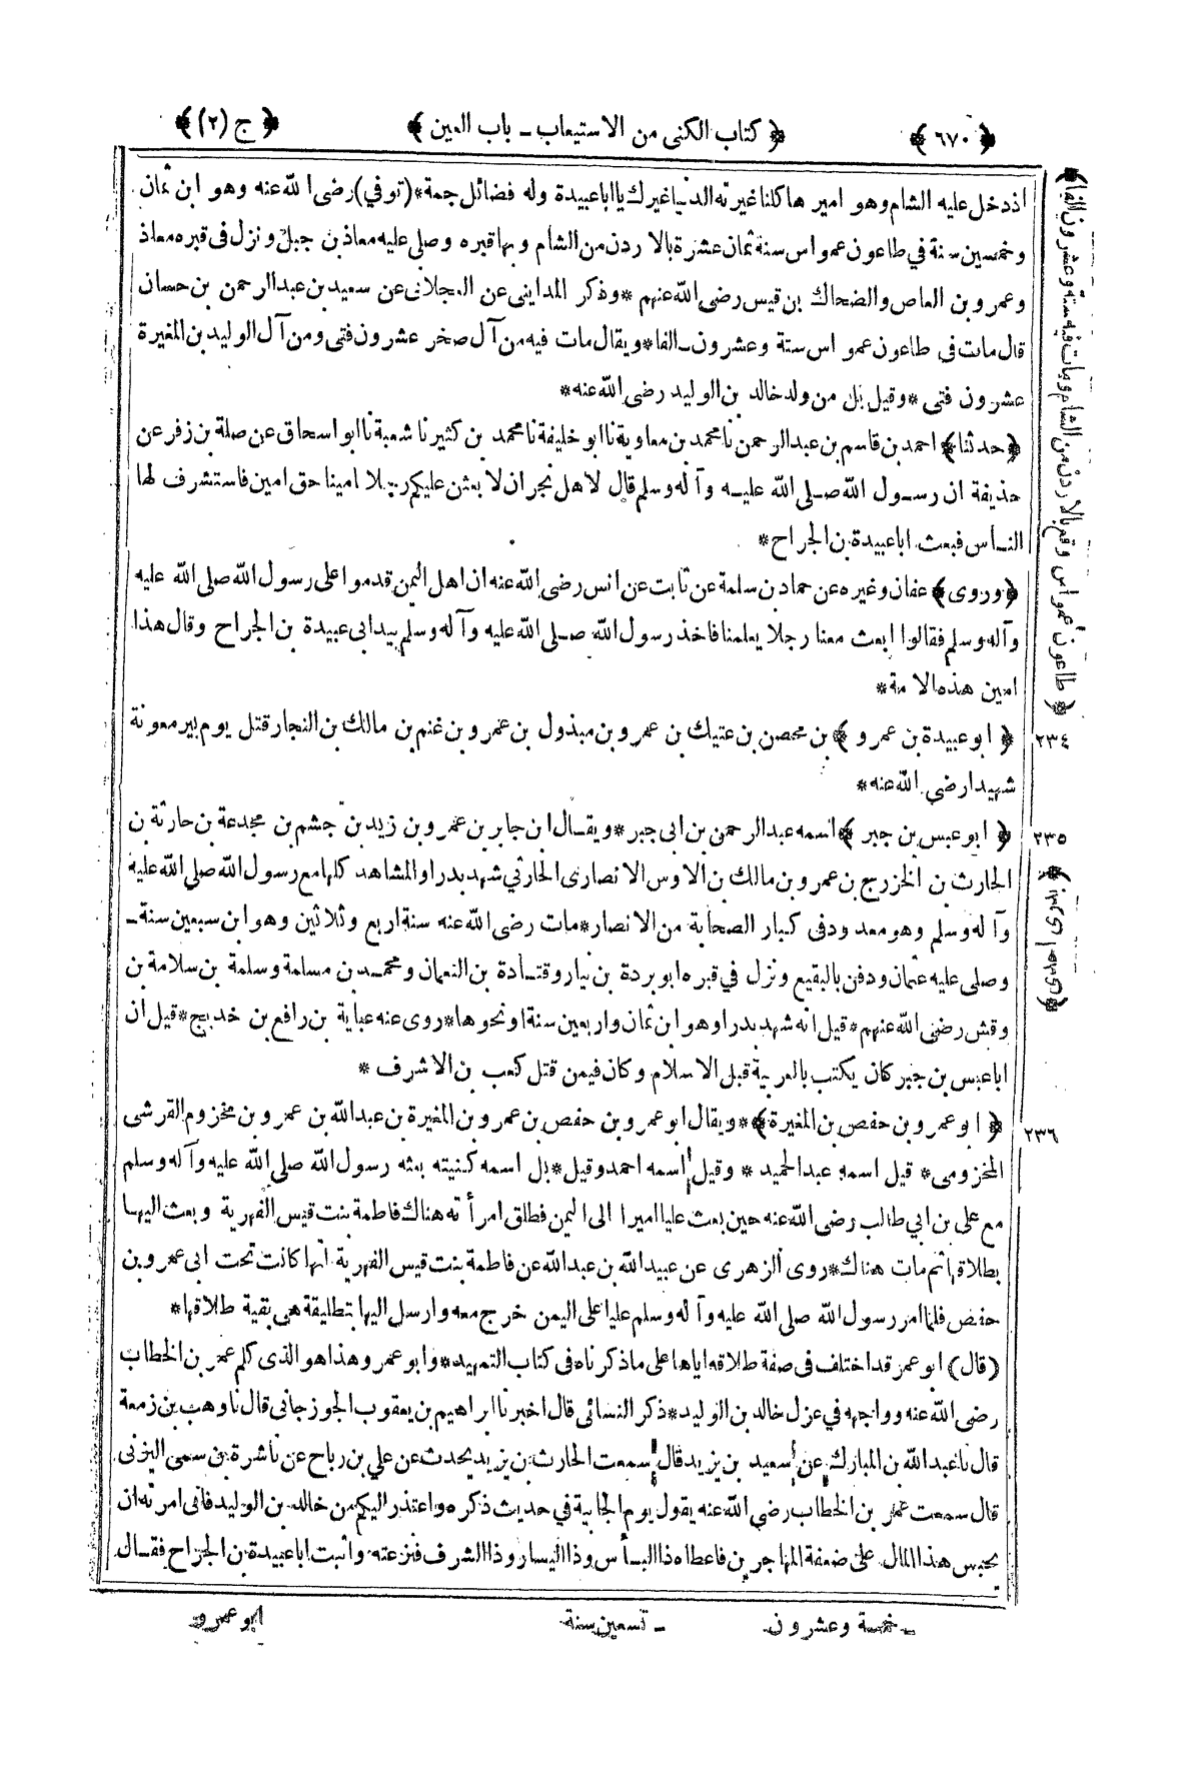 ﴿ ٦٧٠ ﴾ ﴿ كتاب الكنى من الاستيعاب ـ باب العين ﴾ ﴿ ج (٢) ﴾
اذ دخل عليه الشام وهو اميرها كلنا غيرته الدنيا غيرك يا ابا عبيدة وله فضائل جمة * (توفي) رضى الله عنه وهو ابن ثمان
وخمسين سنة في طاعون عمواس سنة ثمان عشرة بالاردن من الشام وبها قبره وصلى عليه معاذ بن جبل ونزل فى قبره معاذ
وعمرو بن العاص والضحاك بن قيس رضى الله عنهم * وذكر المداينى عن العجلانى عن سعيد بن عبد الرحمن بن حسان
قال مات فى طاعون عمواس ستة وعشرون ـ الفا * ويقال مات فيه من آل صخر عشرون فتى ومن آل الوليد بن المغيرة
عشرون فتى * وقيل بل من ولد خالد بن الوليد رضى الله عنه *
﴿ حدثنا ﴾ احمد بن قاسم بن عبد الرحمن نا محمد بن معاوية نا ابو خليفة نا محمد بن كثير نا شعبة نا ابو اسحاق عن صلة بن زفر عن
حذيفة ان رسول الله صلى الله عليه وآله وسلم قال لاهل نجران لا بعثن عليكم رجلا امينا حق امين فاستشرف لها
الناس فبعث ابا عبيدة بن الجراح *
﴿ وروى ﴾ عفان وغيره عن حماد بن سلمة عن ثابت عن انس رضى الله عنه ان اهل اليمن قدموا على رسول الله صلى الله عليه
وآله وسلم فقالوا ابعث معنا رجلا يعلمنا فاخذ رسول الله صلى الله عليه وآله وسلم بيد ابى عبيدة بن الجراح وقال هذا
امين هذه الامة *
﴿ طاعون عمواس وقع بالاردن من الشام ومات فيه ستة وعشرون الفا ﴾
٢٣٤ ﴿ ابو عبيدة بن عمرو ﴾ بن محصن بن عتيك بن عمرو بن مبذول بن عمرو بن غنم بن مالك بن النجار قتل يوم بير معونة
شهيدا رضى الله عنه *
٢٣٥ ﴿ ابو عبس بن جبر ﴾ اسمه عبد الرحمن بن ابى جبر * ويقال ابن جابر بن عمرو بن زيد بن جشم بن مجدعة بن حارثة بن
الحارث بن الخزرج بن عمرو بن مالك بن الاوس الانصارى الحارثي شهد بدرا والمشاهد كلها مع رسول الله صلى الله عليه
وآله وسلم وهو معدود فى كبار الصحابة من الانصار * مات رضى الله عنه سنة اربع وثلاثين وهو ابن سبعين سنة ـ
وصلى عليه عثمان ودفن بالبقيع ونزل في قبره ابو بردة بن نيار وقتادة بن النعمان ومحمد بن مسلمة وسلمة بن سلامة بن
وقش رضى الله عنهم * قيل انه شهد بدرا وهو ابن ثمان واربعين سنة او نحوها * روى عنه عباية بن رافع بن خديج * قيل ان
ابا عبس بن جبر كان يكتب بالعربية قبل الاسلام وكان فيمن قتل كعب بن الاشرف *
٢٣٦ ﴿ ابو عمرو بن حفص بن المغيرة ﴾ * ويقال ابو عمرو بن حفص بن عمرو بن المغيرة بن عبد الله بن عمرو بن مخزوم القرشى
المخزومى * قيل اسمه عبد الحميد * وقيل اسمه احمد وقيل * بل اسمه كنيته بعثه رسول الله صلى الله عليه وآله وسلم
مع على بن ابي طالب رضى الله عنه حين بعث عليا اميرا الى اليمن فطلق امرأته هناك فاطمة بنت قيس الفهرية وبعث اليها
بطلاقها ثم مات هناك * روى الزهرى عن عبيد الله بن عبد الله عن فاطمة بنت قيس الفهرية انها كانت تحت ابى عمرو بن
حفص فلما امر رسول الله صلى الله عليه وآله وسلم عليا على اليمن خرج معه وارسل اليها بتطليقة هى بقية طلاقها *
(قال) ابو عمر قد اختلف فى صفة طلاقه اياها على ما ذكرناه فى كتاب التمهيد * وابو عمرو هذا هو الذى كلم عمر بن الخطاب
رضى الله عنه وواجهه في عزل خالد بن الوليد * ذكر النسائى قال اخبرنا ابراهيم بن يعقوب الجوزجانى قال نا وهب بن زمعة
قال نا عبد الله بن المبارك عن سعيد بن يزيد قال سمعت الحارث بن يزيد يحدث عن علي بن رباح عن ناشرة بن سمى اليزنى
قال سمعت عمر بن الخطاب رضى الله عنه يقول يوم الجابية في حديث ذكره واعتذر اليكم من خالد بن الوليد فانى امرته ان
يحبس هذا المال على ضعفة المهاجرين فاعطاه ذا البأس وذا اليسار وذا الشرف فنزعته واثبت ابا عبيدة بن الجراح فقال
ـ خمسة وعشرون ـ تسعين سنة ابو عمرو